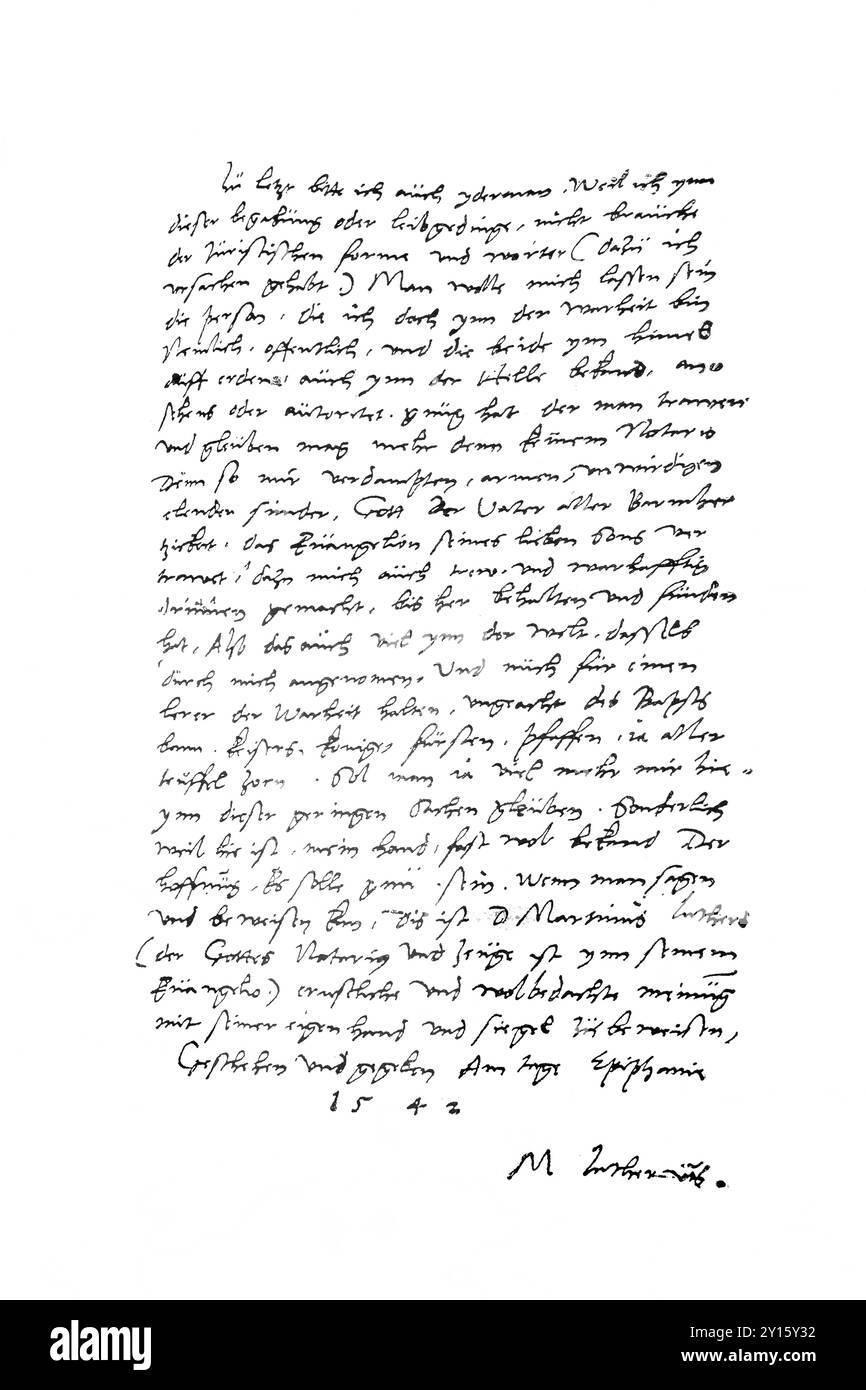 Zü letzt bitte ich auch yderman, Weil ich ynn
dieser begabüng oder leibgedinge, nicht braüche
der Jüristischen forme und wörter ( dazü ich
vrsachen gehabt.) Man wolle mich lassen sein
die person, die ich doch ynn der warheit bin
Nemlich, offentlich, und die beide ym himel
auff erden, aüch ynn der Helle bekand, an=
sehens oder aütoritet, gnüg hat, der man trawen
und gleüben mag mehr denn keinem Notario
Denn so mir verdampten, armen, unwirdigen
elenden sünder, Gott der Vater aller Barmher
tzickeit, das Eüangelion seines lieben Sons ver
trawet, dazu mich aüch trew und warhafftig
drinnen gemacht, bis her behalten und fünden
hat, Also das aüch viel ynn der welt, dasselb
dürch mich angenomen, Und mich für einen
lerer der Warheit halten, ungeacht des Bapsts
bann, keisers, konige, fürsten, pfaffen, ia aller
teüffel zorn, Sol man ia viel mehr mir hie=
ynn dieser geringen sachen gleüben, Sonderlich
weil hie ist, mein hand, fast wol bekand Der
hoffnüg, Es solle gnü sein, Wenn man sagen
und beweisen kan, dis ist D Martinüs Luthers
(der Gottes Notarius und zeüge ist ynn seinem
Eüangelio.) ernstliche und wolbedachte meinüg
mit seiner eigen hand und siegel zü beweisen,
Geschehen und gegeben Am tage Epiphanie
1 5 4 2
M Luther
alamy
Image ID: YY15Y32
www.alamy.com